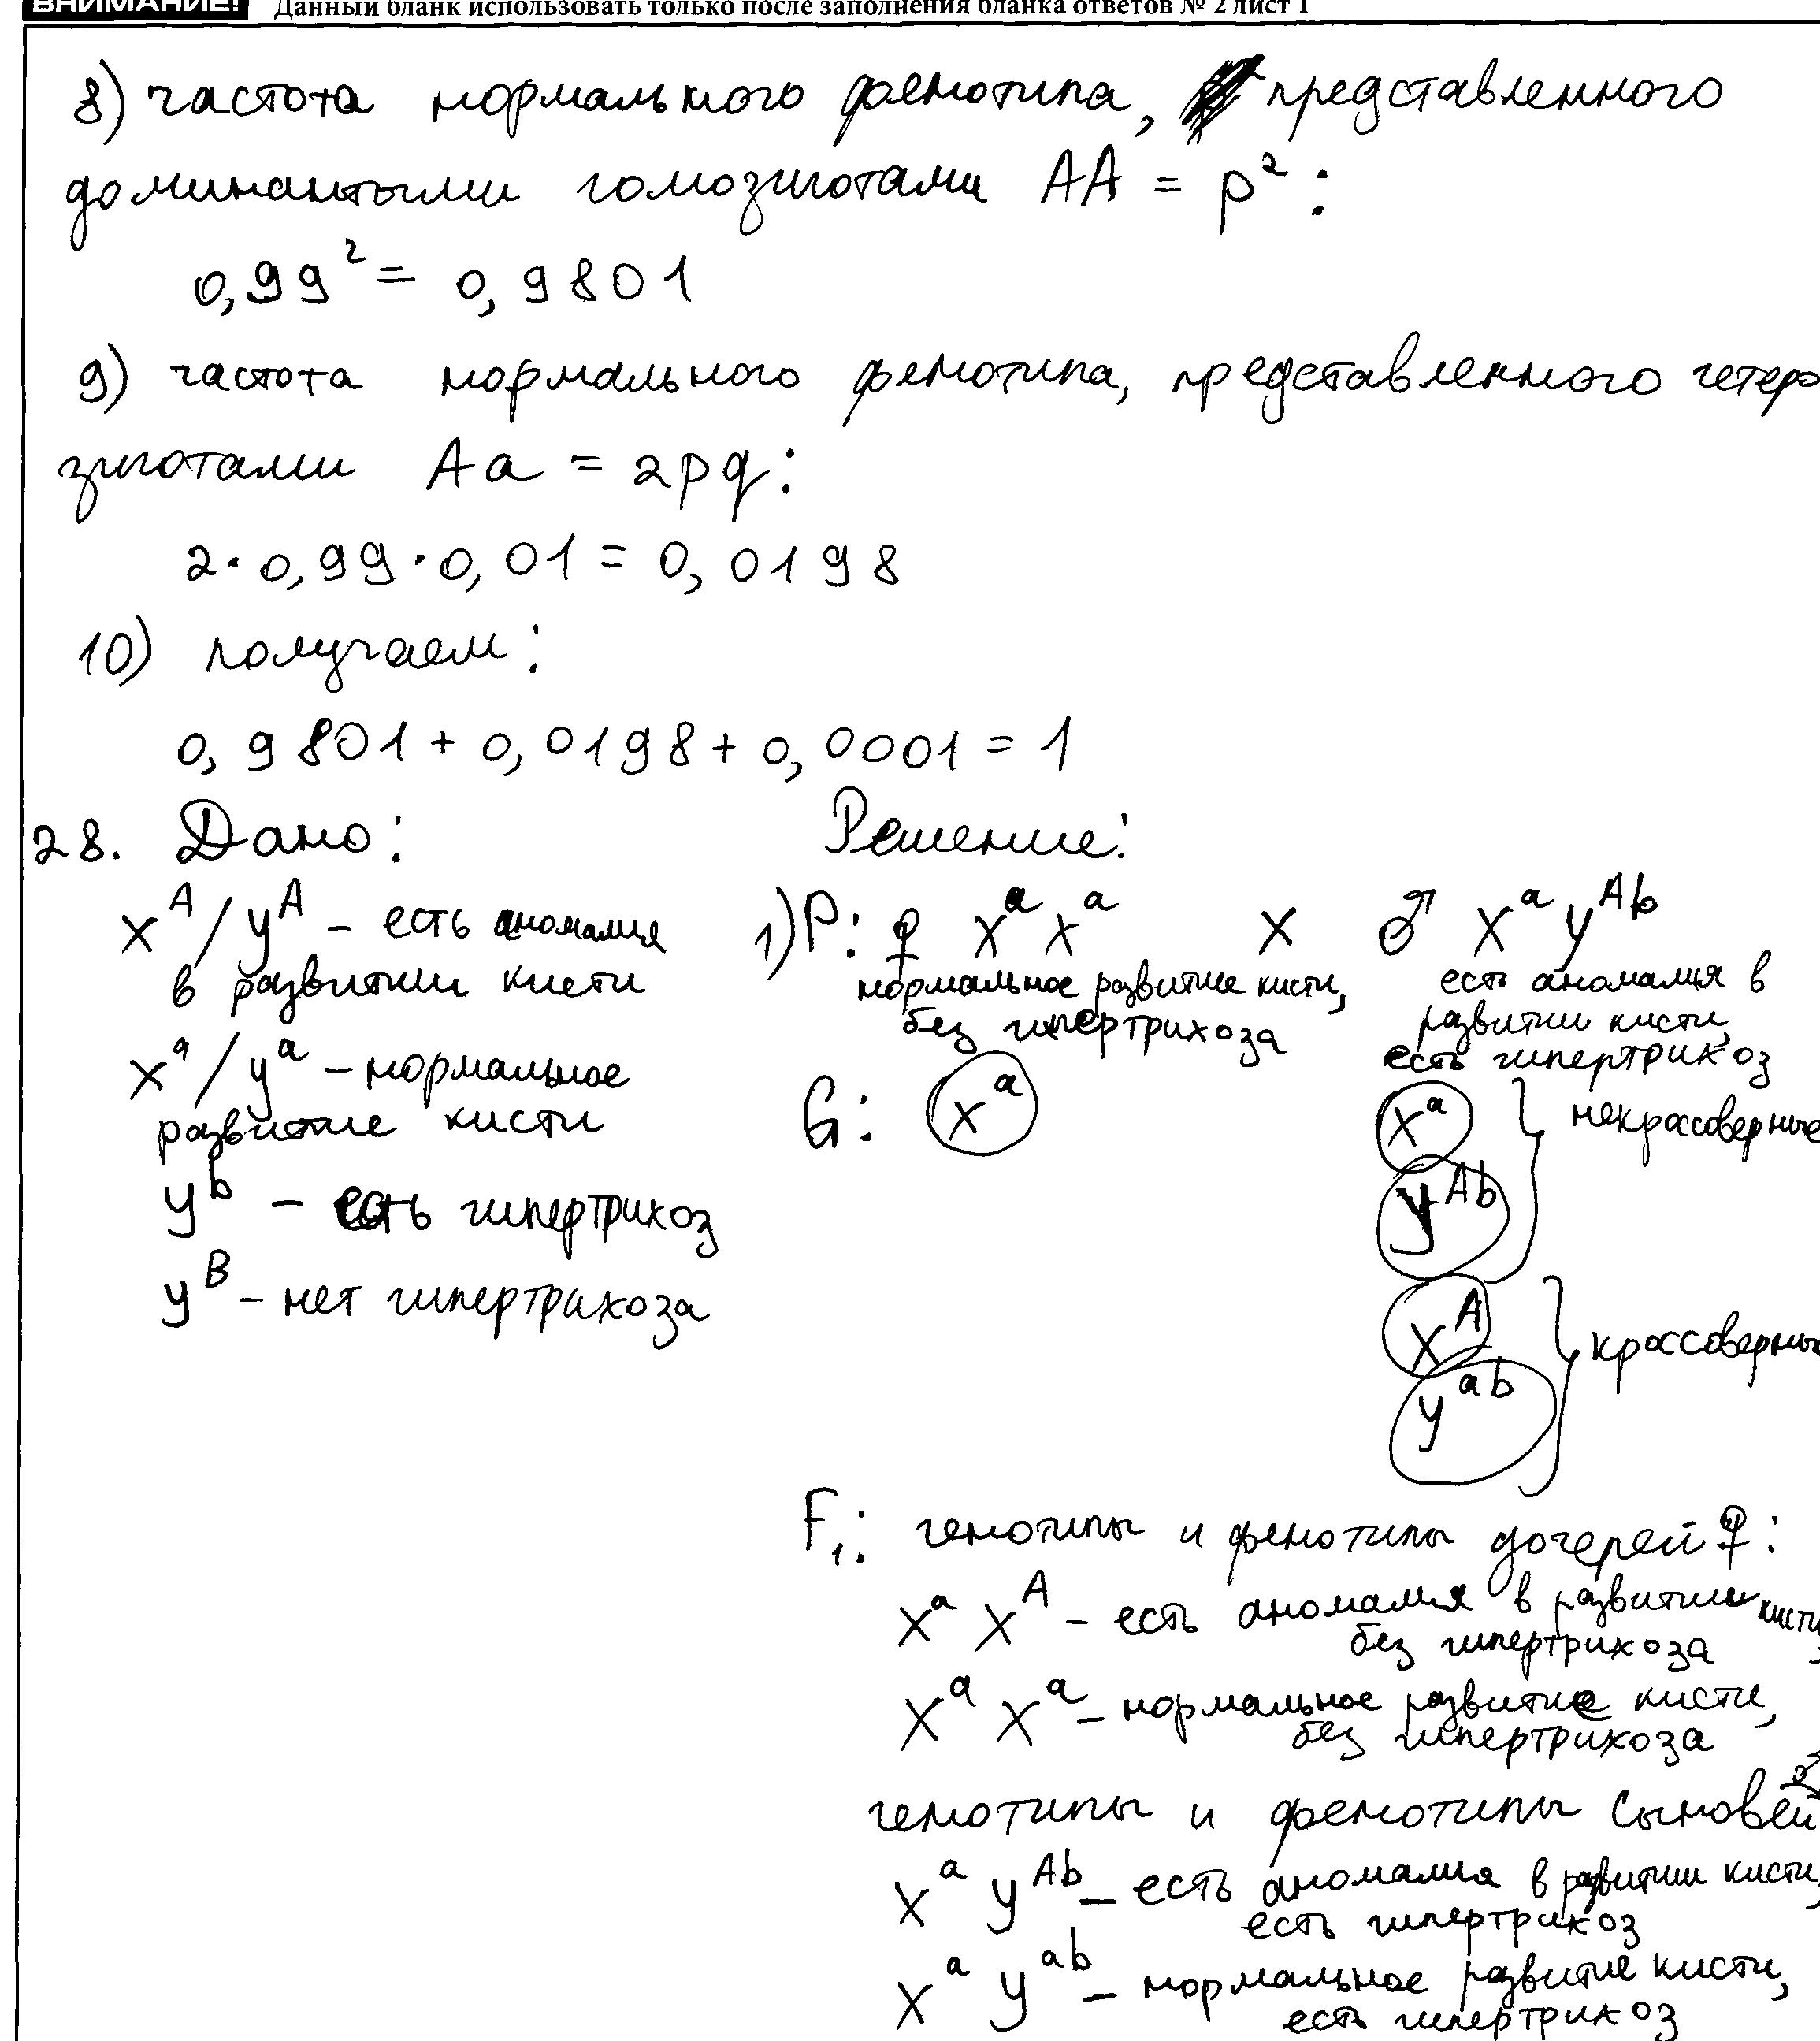 ВНИМАНИЕ! Данный бланк использовать только после заполнения бланка ответов № 2 лист 1
8) частота нормального фенотипа, представленного
доминантыми гомозиготами AA = p²:
0,99² = 0,9801
9) частота нормального фенотипа, представленного гетеро
зиготами Aa = 2pq:
2·0,99·0,01 = 0,0198
10) получаем:
0,9801 + 0,0198 + 0,0001 = 1
28. Дано:
x^A / y^A – есть аномалия
в развитии кисти
x^a / y^a – нормальное
развитие кисти
y^b – есть гипертрихоз
y^B – нет гипертрихоза
Решение:
1) P: ♀ x^a x^a x ♂ x^a y^Ab
нормальное развитие кисти, есть аномалия в
без гипертрихоза развитии кисти,
есть гипертрихоз
G: x^a x^a некроссоверные
y^Ab
x^A кроссоверные
y^ab
F₁: генотипы и фенотипы дочерей ♀:
x^a x^A – есть аномалия в развитии кисти,
без гипертрихоза
x^a x^a – нормальное развитие кисти,
без гипертрихоза
генотипы и фенотипы сыновей ♂
x^a y^Ab – есть аномалия в развитии кисти,
есть гипертрихоз
x^a y^ab – нормальное развитие кисти,
есть гипертрихоз